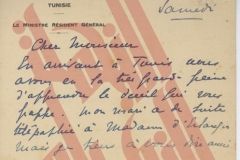 TUNISIE
LE MINISTRE RÉSIDENT GÉNÉRAL
Samedi
Cher Monsieur
En arrivant à Tunis nous
avons eu la très grande peine
d'apprendre le deuil qui vous
frappe. Mon mari a de suite
télégraphié à Madame d'Erlanger
mais je tiens à vous